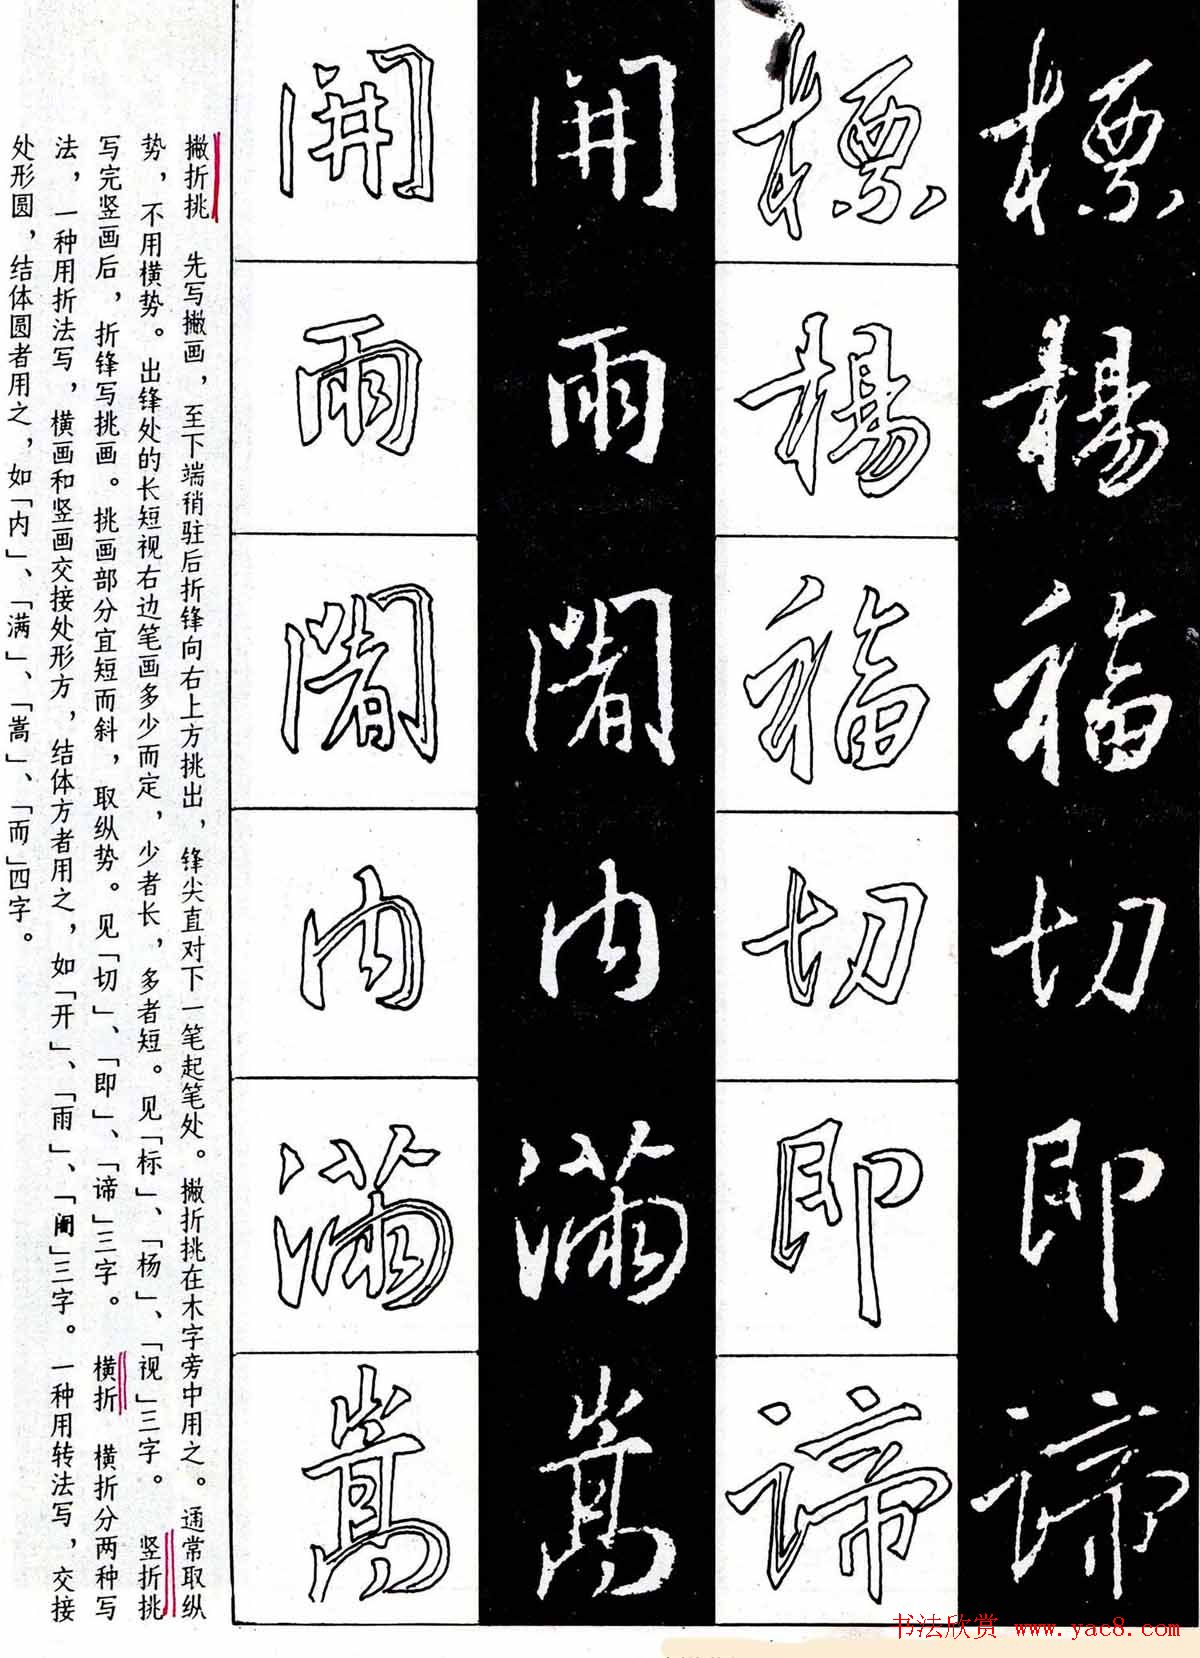 標
楊
福
切
即
諦
標
楊
福
切
即
諦
開
雨
闍
内
滿
嵩
開
雨
闍
内
滿
嵩
撇折挑　先写撇画，至下端稍驻后折锋向右上方挑出，锋尖直对下一笔起笔处。撇折挑在木字旁中用之。通常取纵
势，不用横势。出锋处的长短视右边笔画多少而定，少者长，多者短。见「标」、「杨」、「视」三字。　竖折挑
写完竖画后，折锋写挑画。挑画部分宜短而斜，取纵势。见「切」、「即」、「谛」三字。　横折　横折分两种写
法，一种用折法写，横画和竖画交接处形方，结体方者用之，如「开」、「雨」、「阇」三字。一种用转法写，交接
处形圆，结体圆者用之，如「内」、「满」、「嵩」、「而」四字。
书法欣赏 www.yac8.com